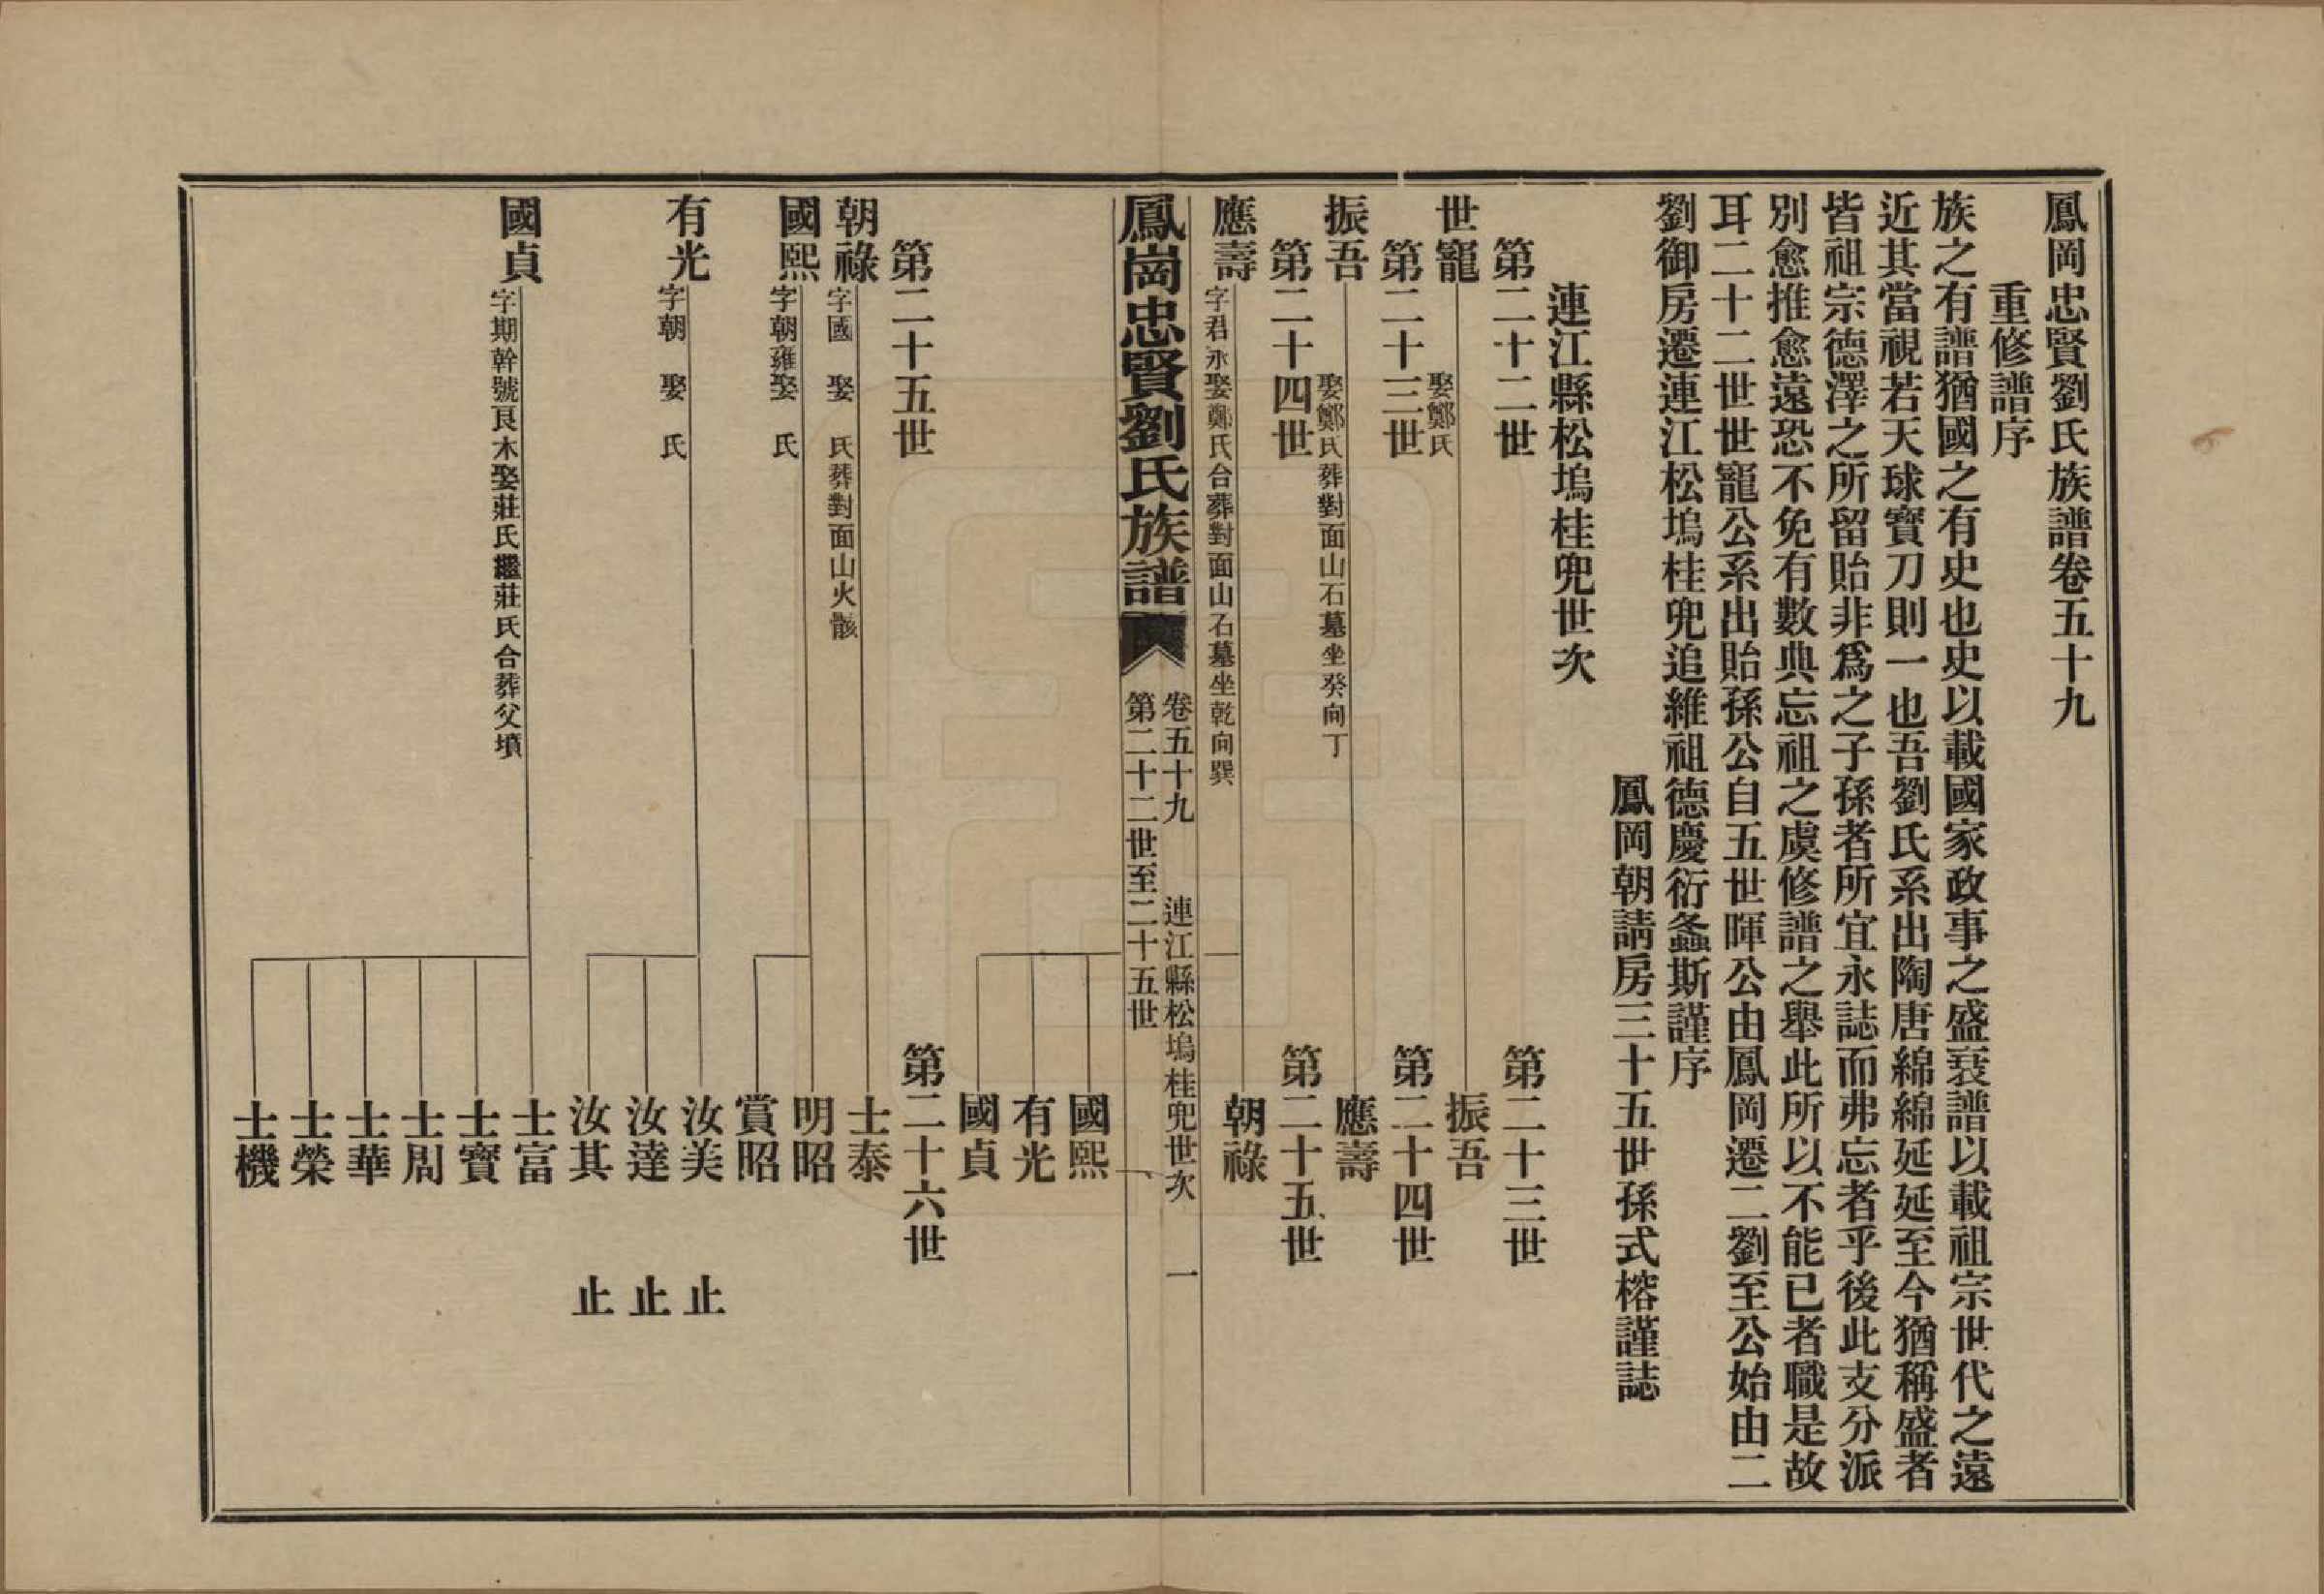 鳳岡忠賢劉氏族譜卷五十九
重修譜序
族之有譜猶國之有史也史以載國家政事之盛衰譜以載祖宗世代之遠
近其當視若天球寶刀則一也吾劉氏系出陶唐綿綿延延至今猶稱盛者
皆祖宗德澤之所留貽非爲之子孫者所宜永誌而弗忘者乎後此支分派
別愈推愈遠恐不免有數典忘祖之虞修譜之舉此所以不能已者職是故
耳二十二世世寵公系出貽孫公自五世暉公由鳳岡遷二劉至公始由二
劉御房遷連江松塢桂兜追維祖德慶衍螽斯謹序
鳳岡朝請房三十五世孫式榕謹誌
連江縣松塢桂兜世次
第二十二世
第二十三世
世寵
娶鄭氏
振吾
第二十三世
第二十四世
振吾
娶鄭氏葬對面山石墓坐癸向丁
應壽
第二十四世
第二十五世
應壽
字君永娶鄭氏合葬對面山石墓坐乾向巽
朝祿
鳳崗忠賢劉氏族譜
卷五十九 連江縣松塢桂兜世次 一
第二十二世至二十五世
國熙
有光
國貞
第二十五世
第二十六世
朝祿
字國 娶 氏葬對面山火骸
士泰
國熙
字朝雍娶 氏
明昭
賞昭
有光
字朝 娶 氏
汝美 止
汝達 止
汝其 止
國貞
字期幹號艮木娶莊氏繼莊氏合葬父墳
士富
士寶
士周
士華
士榮
士機